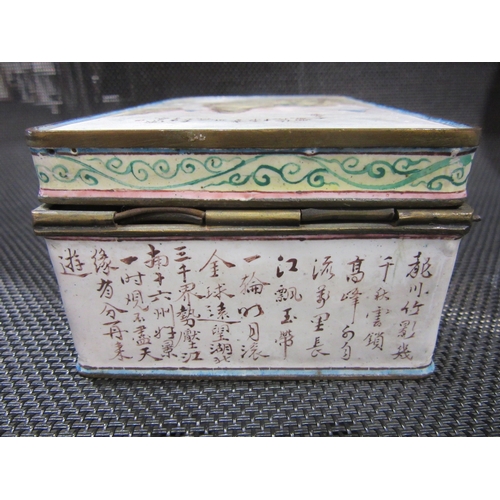 龍川竹影幾
千秋雲鎖
高峰水自
流萬里長
江飄玉帶
一輪明月滾
金球遠望湖北
三千界勢壓江
南十六州好景
一時观不盡天
緣有分再来
遊